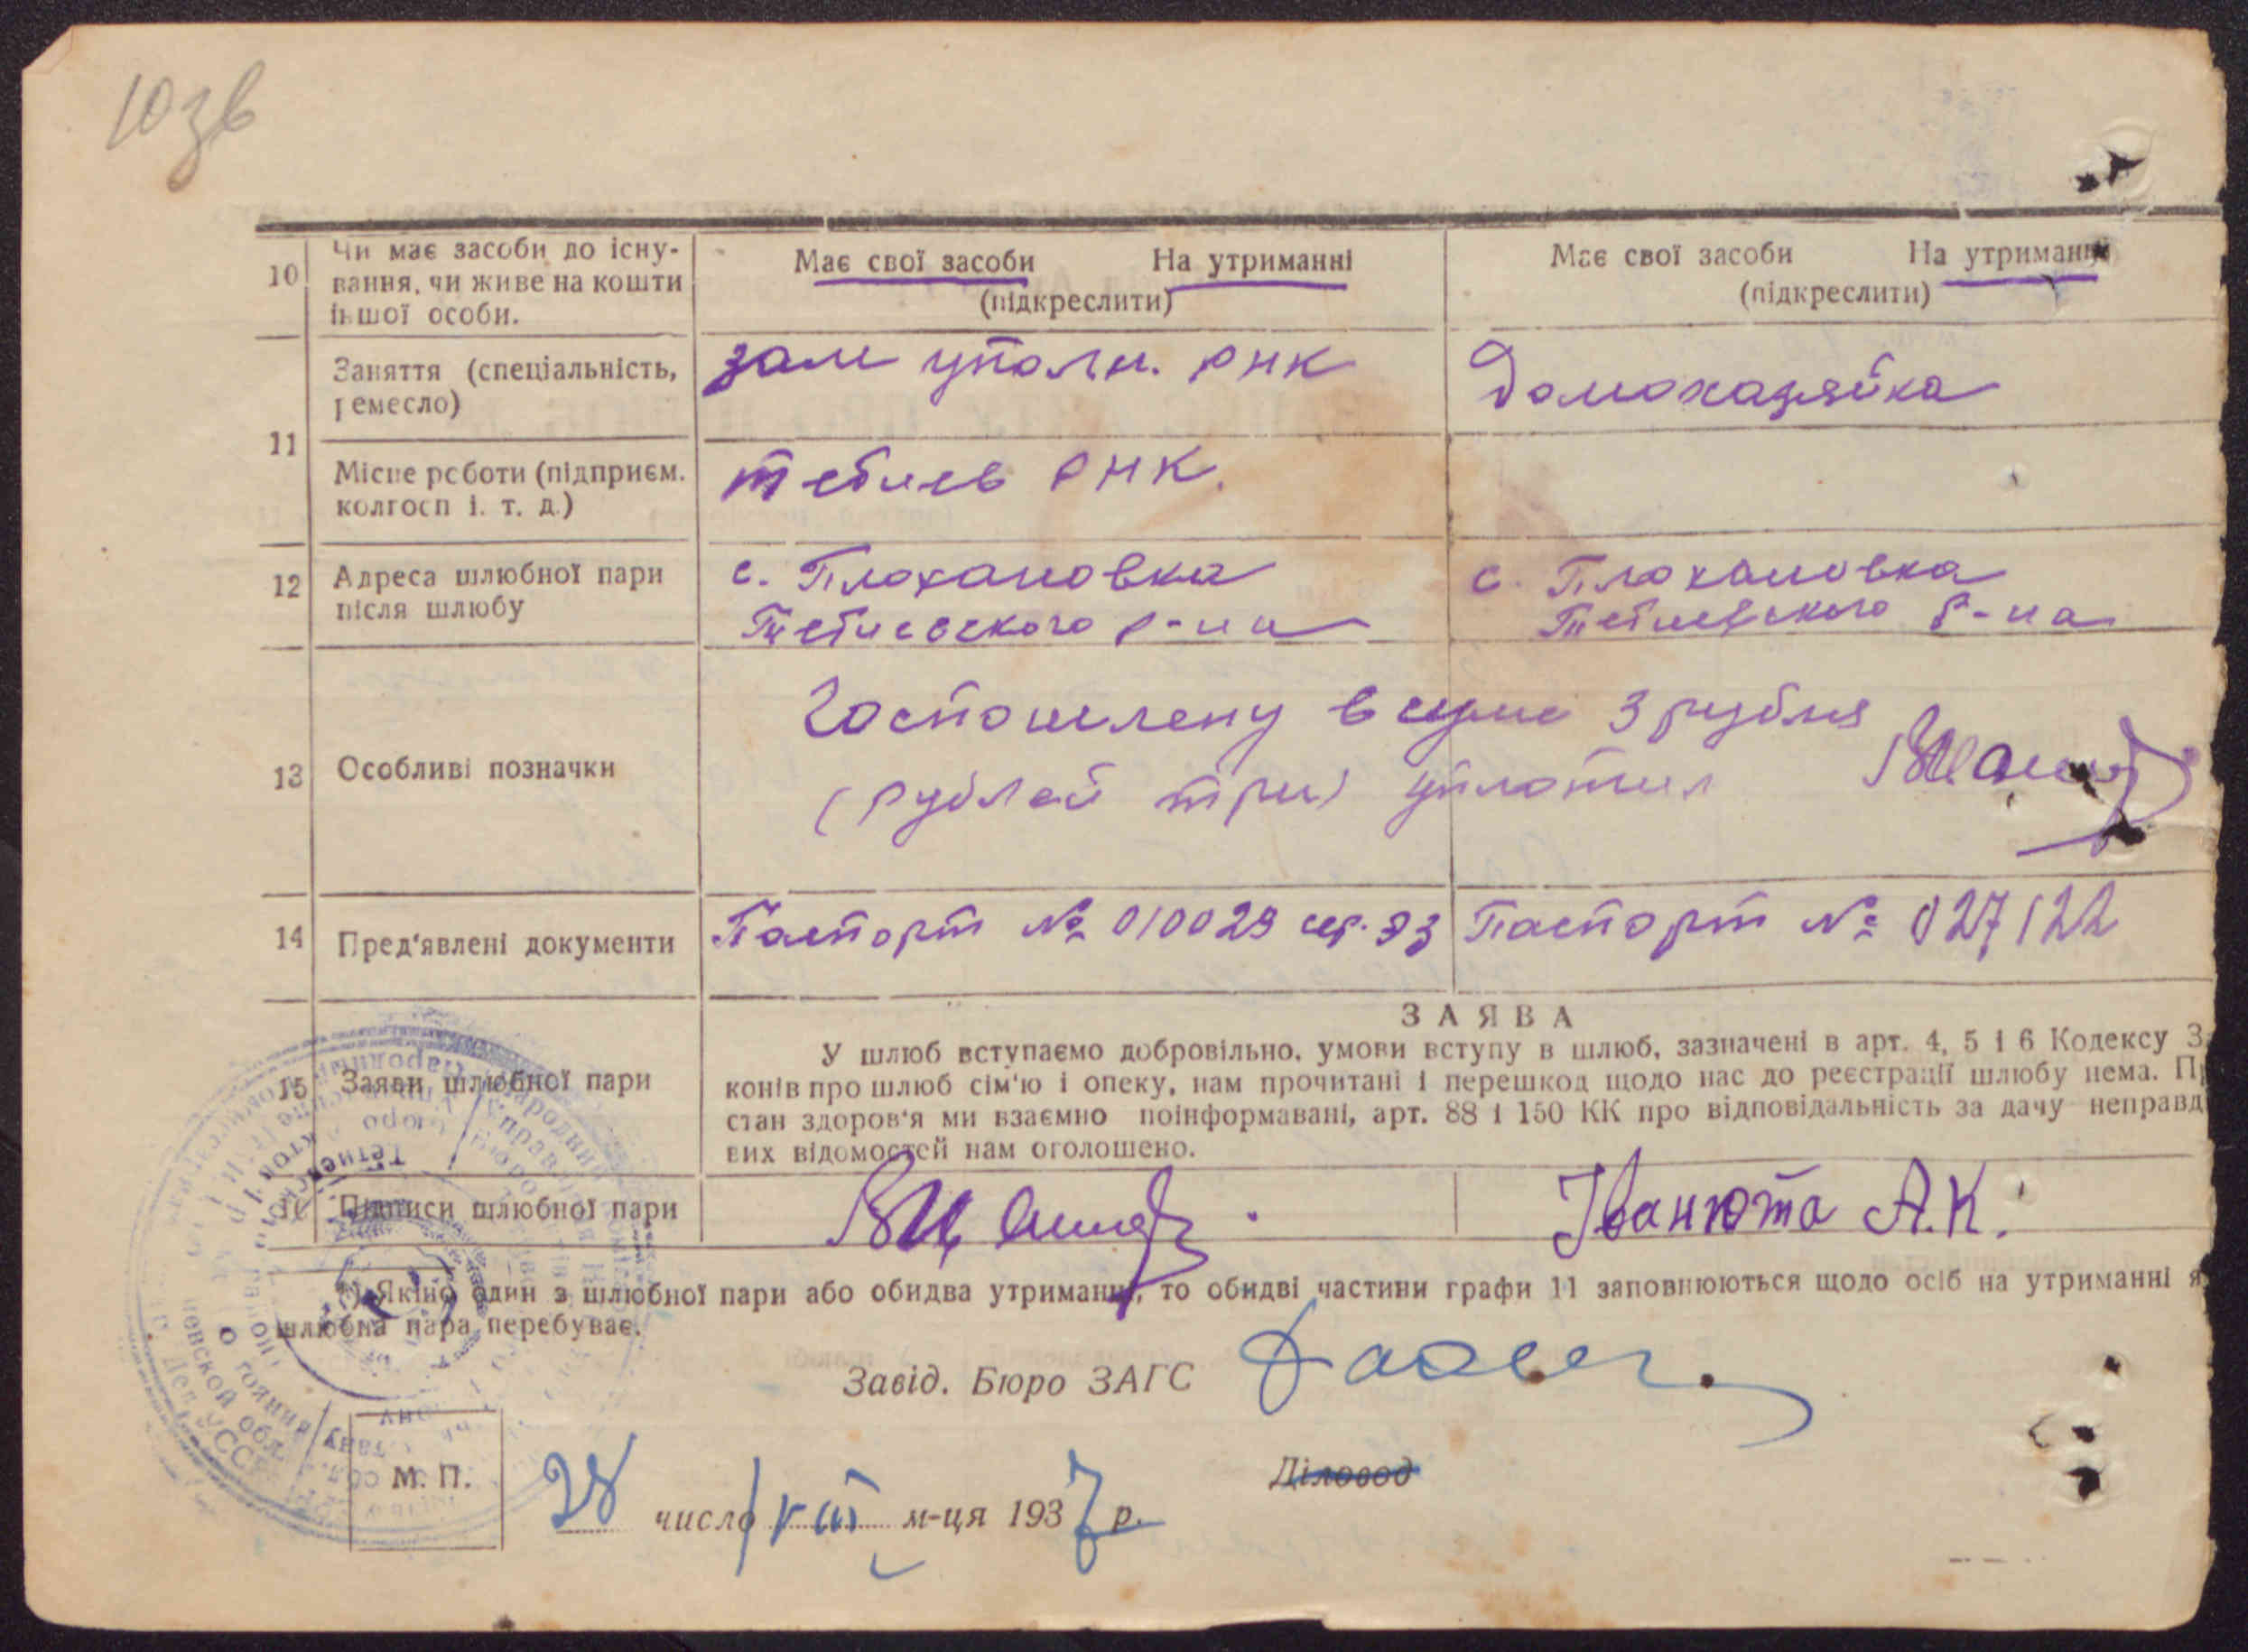 10зв
10 Чи має засоби до існу-
вання, чи живе на кошти
іншої особи.
Має свої засоби На утриманні
(підкреслити)
Має свої засоби На утриманні
(підкреслити)
11 Заняття (спеціальність,
ремесло)
зам уполн. РНК
домохазяйка
Місце роботи (підприєм.
колгосп і. т. д.)
тетиев РНК.
12 Адреса шлюбної пари
після шлюбу
с. Плохановка
Тетиевского р-на
с. Плохановка
Тетиевского р-на
13 Особливі позначки
Госпошлену в суме 3 рубля
(рублей три) уплотил
14 Пред'явлені документи
Паспорт № 010029 сер. 93
Паспорт № 027122
ЗАЯВА
15 Заяви шлюбної пари
У шлюб вступаємо добровільно, умови вступу в шлюб, зазначені в арт. 4, 5 і 6 Кодексу З
конів про шлюб сім'ю і опеку, нам прочитані і перешкод щодо нас до реєстрації шлюбу нема. П
стан здоров'я ми взаємно поінформавані, арт. 88 і 150 КК про відповідальність за дачу неправд
вих відомостей нам оголошено.
Підписи шлюбної пари
Іванюта А.К.
*) Якщо один з шлюбної пари або обидва утриманні, то обидві частини графи 11 заповнюються щодо осіб на утриманні я
шлюбна пара перебуває.
Завід. Бюро ЗАГС
Діловод
М. П.
28 число VIII м-ця 1937 р.